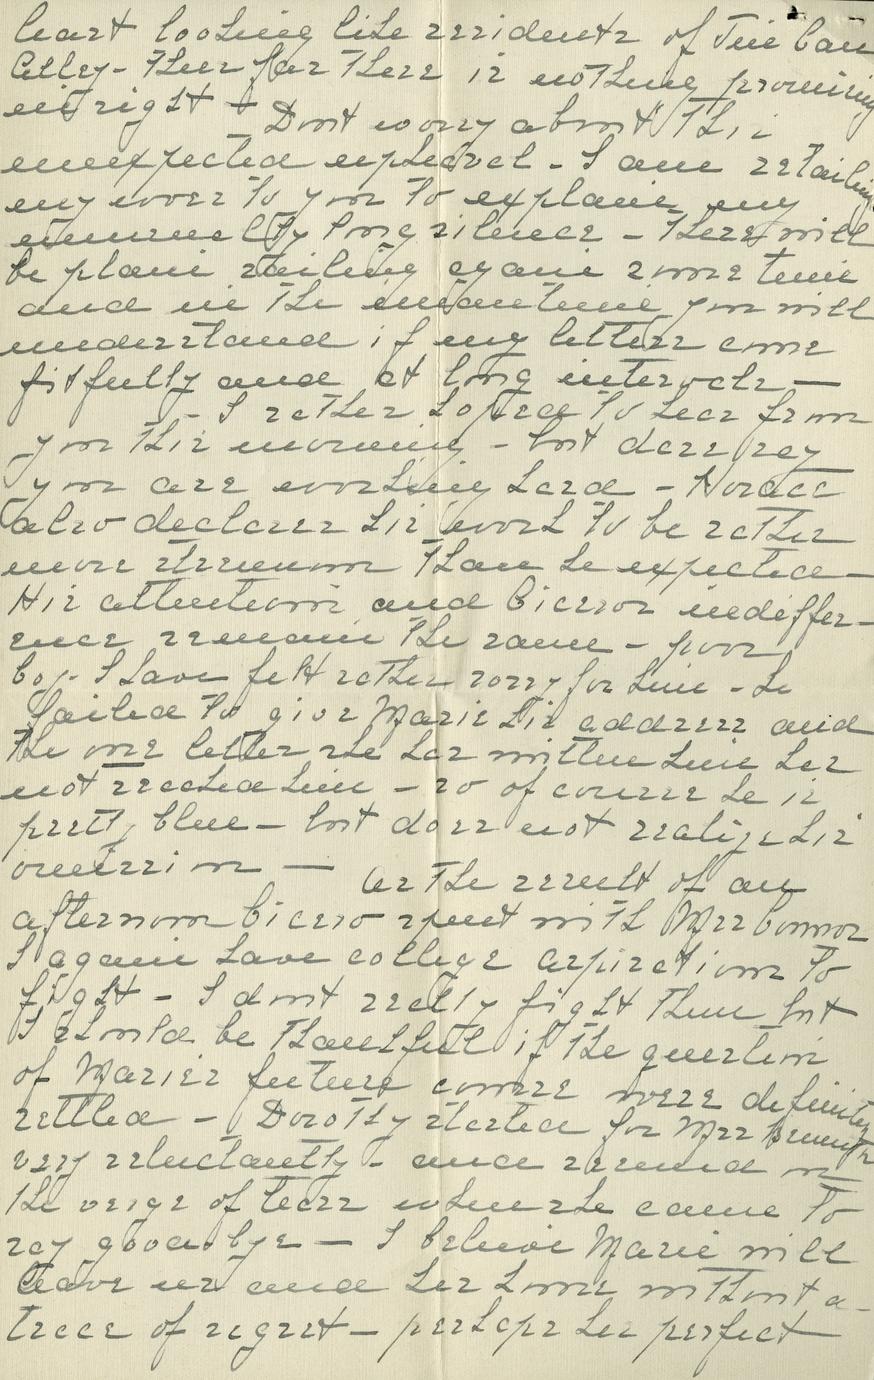 least looking like residents of Tin Can
Alley - Thus far there is nothing promising
in sight - Don't worry about this
unexpected upheaval - I am retailing
my woes to you to explain my
unusually long silence - There will
be plain sailing again some time
and in the meantime you will
understand if my letters come
fitfully and at long intervals -
- I rather hoped to hear from
you this morning - but dare say
you are working hard - Horace
also declares his work to be rather
more strenuous than he expected -
His attentions and Cicero's indiffer-
ence remain the same - poor
boy - I have felt rather sorry for him - he
failed to give Marie his address and
the one letter she has written him has
not reached him - so of course he is
pretty blue - but does not realize his
omission - As the result of an
afternoon Cicero spent with Mrs Connor
I again have college aspirations to
fight - I don't really fight them but
I should be thankful if the question
of Marie's future course were definitely
settled - Dorothy started for Mrs
very reluctantly - and seemed on
the verge of tears when she came to
say goodbye - I believe Marie will
leave us and her home without a
trace of regret - perhaps her perfect